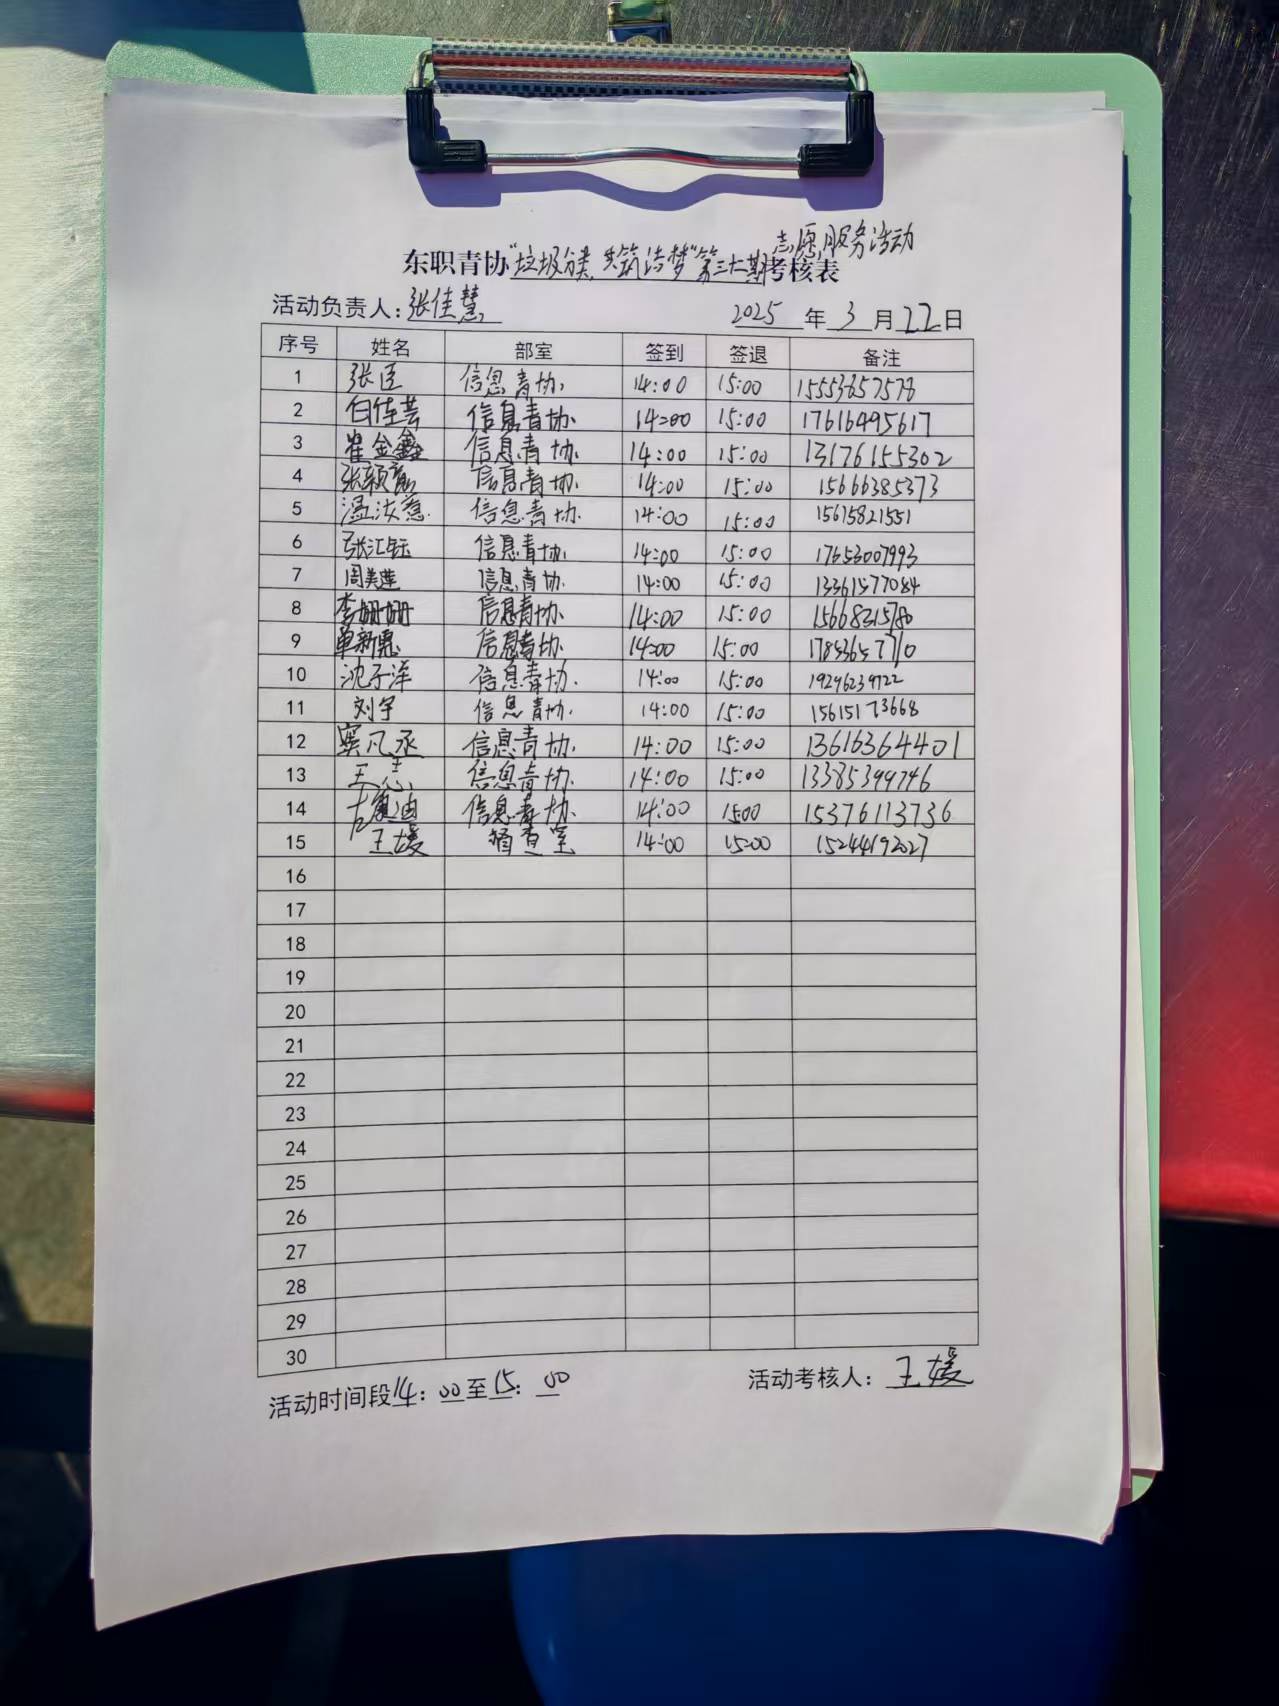 志愿服务活动
东职青协"垃圾分类,共筑洁梦"第三十期考核表
活动负责人:张佳慧 2025年3月22日
序号 姓名 部室 签到 签退 备注
1 张臣 信息青协 14:00 15:00 15553657578
2 白佳芸 信息青协 14:00 15:00 17616495617
3 崔金鑫 信息青协 14:00 15:00 13176155302
4 张颖 信息青协 14:00 15:00 15666385373
5 温汝意 信息青协 14:00 15:00 15615821551
6 张汇钰 信息青协 14:00 15:00 17653007993
7 周美莲 信息青协 14:00 15:00 13361577084
8 李姗姗 信息青协 14:00 15:00 15668321580
9 单新惠 信息青协 14:00 15:00 17853657710
10 沈子洋 信息青协 14:00 15:00 19296239722
11 刘宇 信息青协 14:00 15:00 15615173668
12 窦凡丞 信息青协 14:00 15:00 13616364401
13 王 信息青协 14:00 15:00 13385399746
14 古夏迪 信息青协 14:00 15:00 15376113736
15 王媛 稽查室 14:00 15:00 15244192027
16
17
18
19
20
21
22
23
24
25
26
27
28
29
30
活动时间段14:00至15:00 活动考核人:王媛